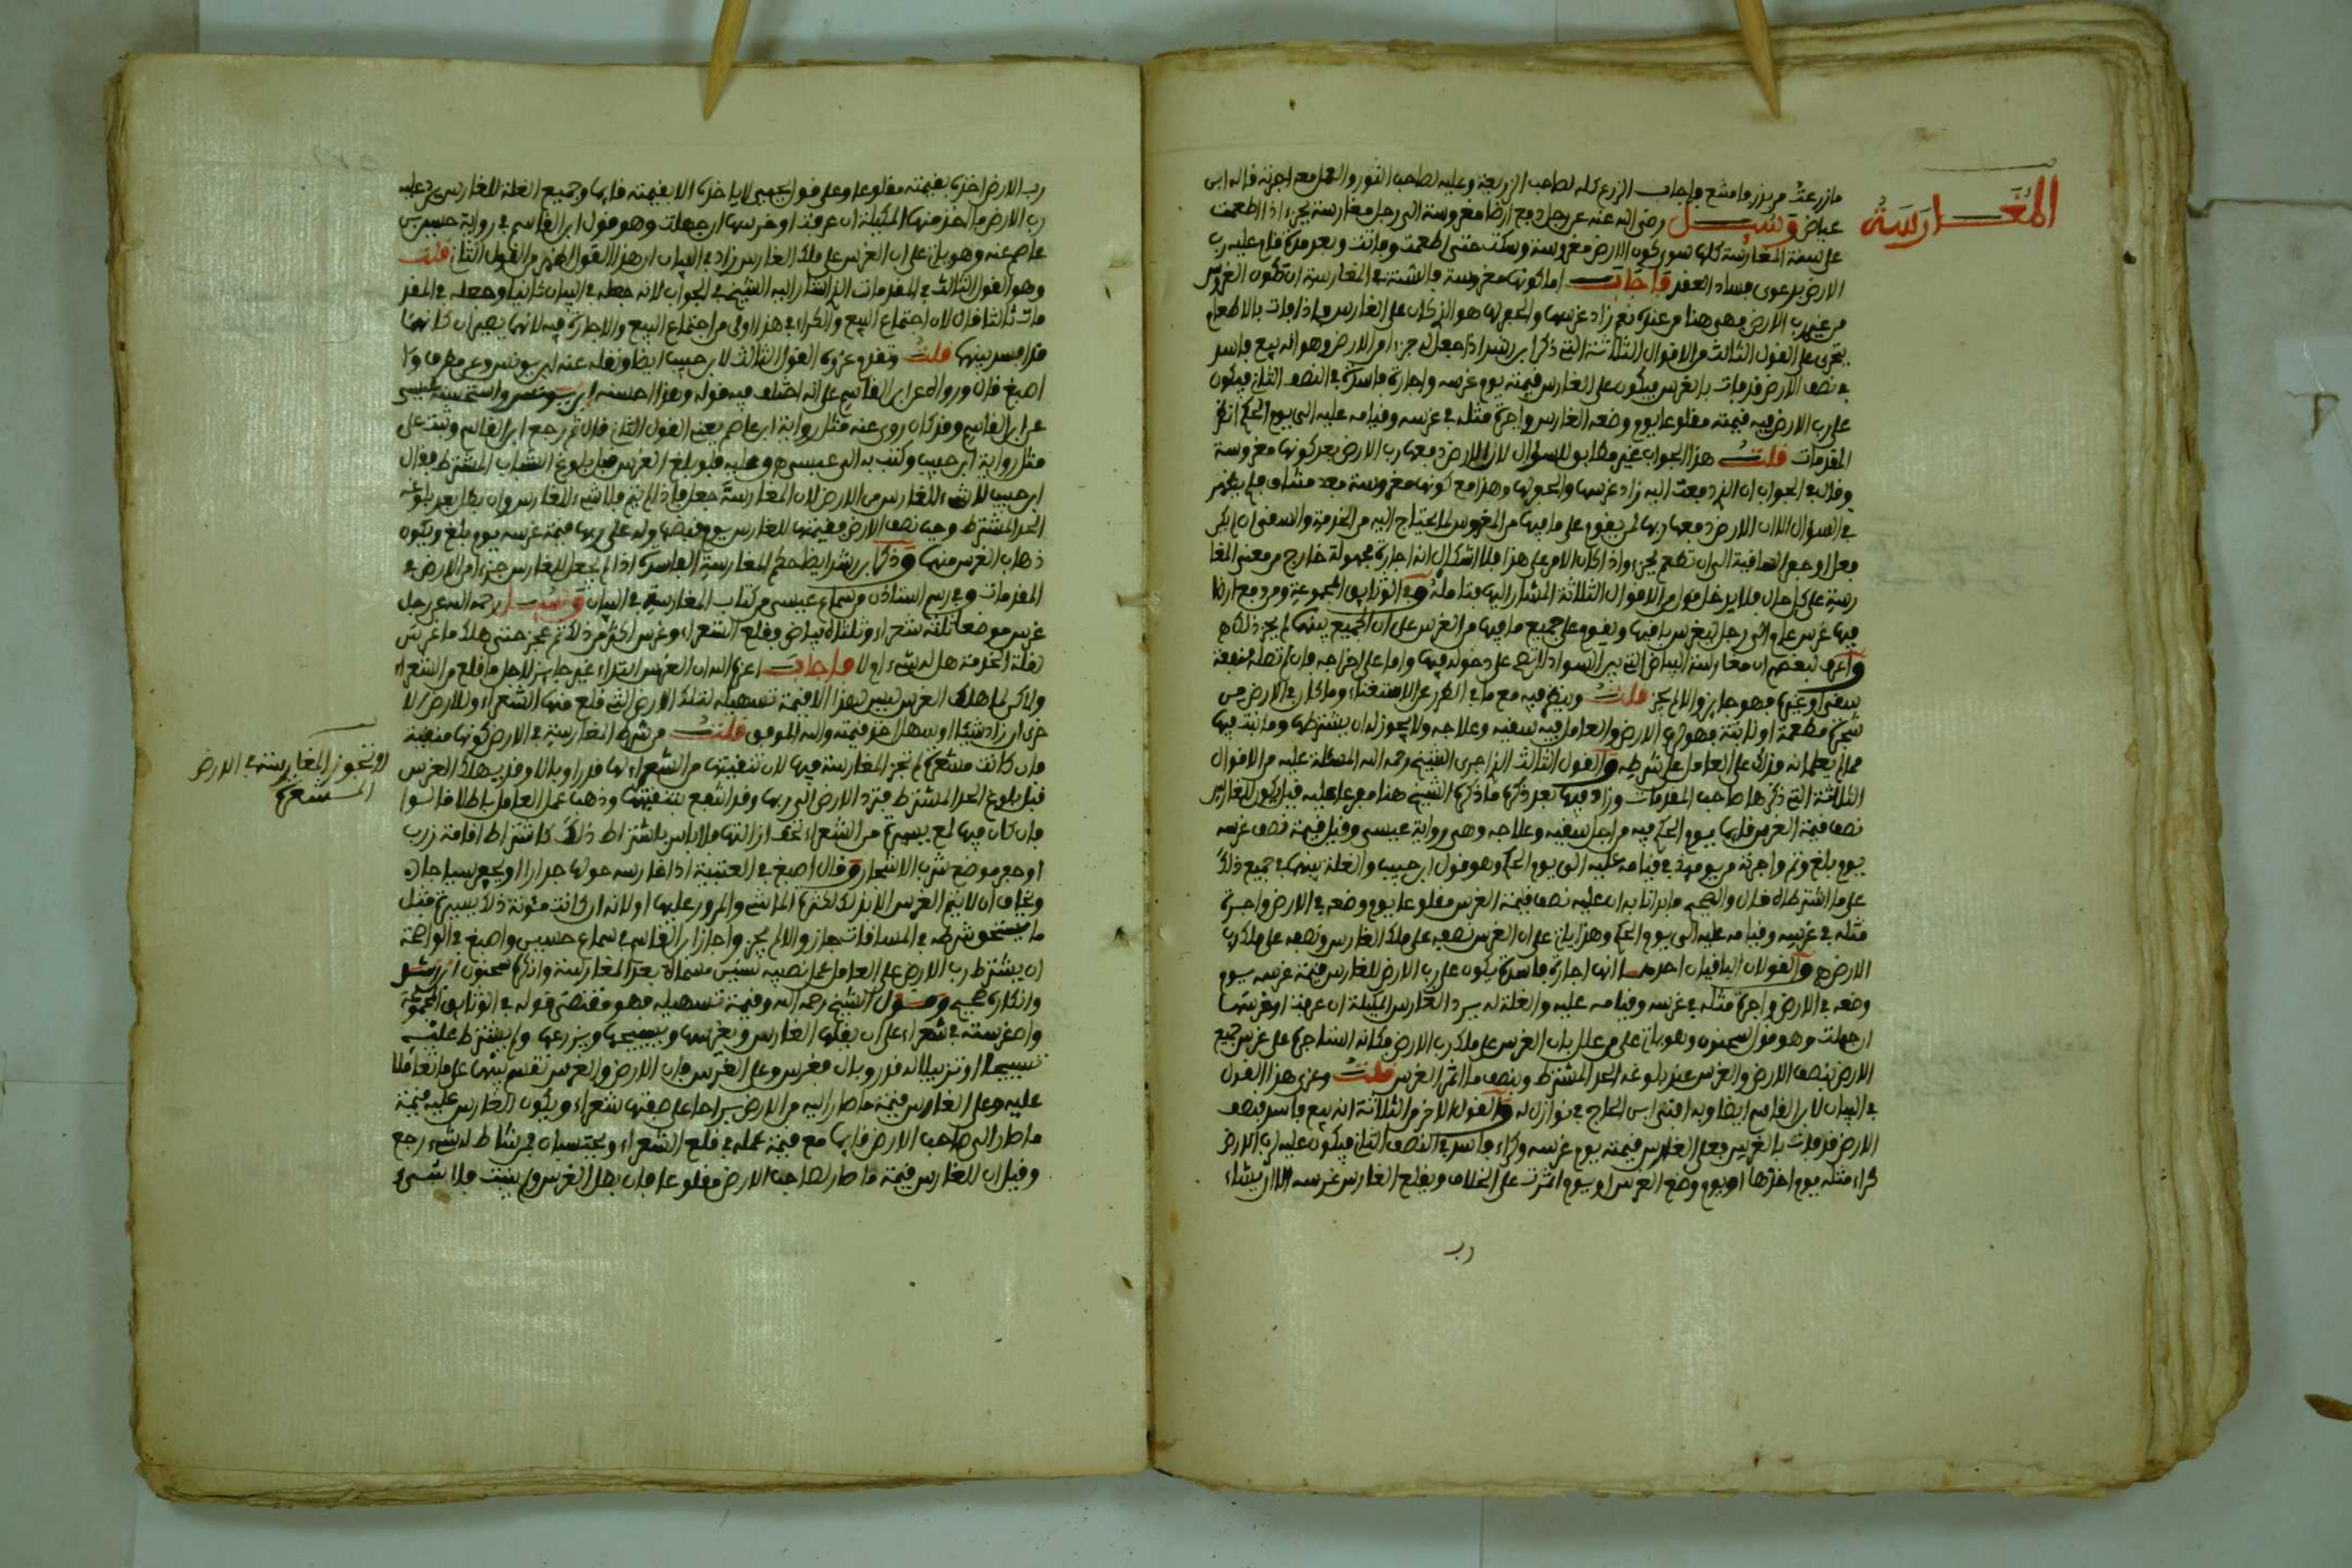 المغارسة
ما زرعت من بذر وما مشع فاجاب الزرع كله لصاحب الزريعة وعليه لصاحب الثور والعمل معه اجرته قاله ابن
عياض وسيل رضي الله عنه عن رجل دفع ارضا مغروسة الى رجل مغارسة بجزء اذا اطعمت
على سنة المغارسة كلها سوى كون الارض مغروسة وسكت حتى اطعمت وماتت وبعد مدة قام عليه رب
الارض يدعوى فساد العقد فاجاب اما كونها مغروسة فالسنة في المغارسة ان تكون الغروس
من عند رب الارض فهي هنا من عنده نعم زاد غرسها والعمل لها هو الذي كان على الغارس واذا فات بالاطعام
يجري على القول الثالث من الاقوال الثلاثة التي ذكر ابن رشد اذا جعل له جزءا من الارض وهو انه بيع فاسد
في نصف الارض قد فات بالغرس فيكون على الغارس قيمته يوم غرسه واجارة فاسدة في النصف الثاني فيكون
على رب الارض فيه قيمته مقلوعا يوم وضعه الغارس واجرة مثله في غرسه وقيامه عليه الى يوم الحكم انظر
المقدمات قلت هذا الجواب غير مطابق للسؤال لان الارض دفعها رب الارض بعد كونها مغروسة
وقال في الجواب ان الذي دفعت اليه زاد غرسها والعمل لها وهذا مع كونها مغروسة معه مشاف فلم يظهر
في السؤال الا ان الارض دفعها ربها لمن يقوم على ما فيها من المغروس لما يحتاج اليه من الخدمة والسقي ان امكن
فعل اوجه المساقية الى ان تطعم بجزء واذا كان الامر على هذا فلا اشكال انه اجارة مجهولة خارج من معنى المغا
رسة على كل حال فلا يدخل فيه من الاقوال الثلاثة المشار اليها فتامله وفي الوثايق المجموعة ومن دفع ارضا
فيها غرس على الى رجل ليغرس باقيها ويقوم على جميع ما فيها من الغرس على ان الجميع بينهما لم يجز ذلك
واعرف لبعضهم ان مغارسة البياض التي بين السواد لا تصح على دخوله فيها واما على اخراجه فان اتصله منفعة
سقي او غيره فهو جايز والا لم يجز قلت وينظر فيه مع ما في الطرر عن الاستغناء وما كان في الارض من
شجرة مطعمة او نابتة فهو لرب الارض والعامل فيه سقيه وعلاجه ولا يجوز له ان يشترطها وما نبت فيها
مما لم يعلما به فذلك على العامل على شرطه والقول الثالث الذي اجرى الشيخ رحمه الله المسئلة عليه من الاقوال
الثلاثة التي ذكرها صاحب المقدمات وزاد فيها بعد ذكره ما ذكره الشيخ هنا مفرعا عليه قيل يكون للغارس
نصف قيمة الغرس قايما يوم الحكم فيه من اجل سقيه وعلاجه وهي رواية عيسى وقيل قيمة نصف غرسه
يوم بلغ وتم واجرته من يومئذ في قيامه عليه الى يوم الحكم وهو قول ابن حبيب والغلة بينهما في جميع ذلك
على ما اشترطاه قال والصحيح ما بدانا به ان عليه نصف قيمة الغرس مقلوعا يوم وضعه في الارض واجرة
مثله في غرسه وقيامه عليه الى يوم الحكم وهذا يات على ان الغرس نصفه على ملك الغارس ونصفه على ملك رب
الارض والقولان الباقيان احدهما انها اجارة فاسدة يكون على رب الارض للغارس قيمة غرسه يوم
وضعه في الارض واجرة مثله في غرسه وقيامه عليه والغلة له يرد الغارس المكيلة ان عرفت او خرصها
ان جهلت وهو قول سحنون وهو يات على من علل بان الغرس على ملك رب الارض فكانه استاجره على غرس جميع
الارض بنصف الارض والغرس عند بلوغه الحد المشترط وبنصف ما اثمر الغرس قلت وعزى هذا القول
في البيان لابن القاسم ايضا وبه افتى ابن الحاج في نوازل له والقول الاخر من الثلاثة انه بيع فاسد بنصف
الارض قد فات بالغرس فعلى الغارس قيمته يوم غرسه وكراء فاسد في النصف الثاني فيكون عليه لرب الارض
كراء مثله يوم اخذها او يوم وضع الغرس او يوم اثمرت على الخلاف ويقلع الغارس غرسه الا ان يشاء
رب
رب الارض اخذه بقيمته مقلوعا وعلى قول يحيى لا ياخذه الا بقيمته قايما وجميع الغلة للغارس يرد عليه
رب الارض ما اخذ منها المكيلة ان عرفت او خرصها ان جهلت وهو قول ابن القاسم في رواية حسين بن
عاصم عنه وهو يات على ان الغرس على ملك الغارس زاد في البيان ان هذا القول اظهر من القول الثاني قلت
وهو القول الثالث في المقدمات الذي اشار اليه الشيخ في الجواب لانه جعله في البيان ثانيا وجعله في المقد
مات ثالثا قال لان اجتماع البيع والكراء في هذا اولى من اجتماع البيع والاجارة فيه لانهما يصيران كانهما
قد افسد بينهما قلت وتقدم عزو القول الثالث لابن حبيب ايضا ونقله عنه ابن يونس وعن مطرف و
اصبغ قال ورواه عن ابن القاسم على انه اختلف فيه قوله وهذا احسنه ابن يونس واستحسنه عيسى
عن ابن القاسم وقد كان روى عنه مثل رواية ابن عاصم يعني القول الثاني قال ثم رجع ابن القاسم وثبت على
مثل رواية ابن حبيب وكتب به الى عيسى وعليه فلو بلغ الغرس قبل بلوغ الشباب المشترط فقال
ابن حبيب لا شيء للغارس من الارض لان المغارسة جعل فاذا لم يتم فلا شيء للغارس وان بطل بعد بلوغه
الحد المشترط وجب نصف الارض بقيمتها للغارس يوم قبضها وله على ربها قيمة غرسه يوم بلغ ويكون
ذهاب الغرس منهما وذكر ابن رشد ايضا حكم المغارسة الفاسدة اذا لم يجعل للغارس جزءا من الارض في
المقدمات وفي رسم استاذن من سماع عيسى من كتاب المغارسة في البيان وسيل رحمه الله عن رجل
غرس موضعا ثلثه شعراء وثلثاه بياض وقلع الشعراء وغرس اكثر من ذلك ثم عجز حتى هلك ما غرس
لقلة الخدمة هل له شيء ام لا فاجاب اعزكم الله ان الغرس ابتداء غير جايز لاجل ما قلع من الشعراء
ولاكن لما هلك الغرس ليس لهذا الا قيمة تسهيله لتلك الارض التي قلع منها الشعراء وللارض الا
خرى ان زاد شيئا او سهل اخذ قيمته والله الموفق قلت من شرط المغارسة في الارض كونها منقية
فان كانت مشعرة لم تجز المغارسة فيها لان تنقيتها من الشعراء لها قدر وبال وقد يهلك الغرس
قبل بلوغ الحد المشترط فترد الارض الى ربها وقد انتفع بتنقيتها وذهب عمل العامل باطلا قالوا
فان كان فيها لمع يسيرة من الشعراء تخف ازالتها فلا باس باشتراط ذلك كاشتراط اقامة زرب
او حفر موضع شرب الاشجار وقال اصبغ في العتبية اذا غارسه حولها جدارا او يحفر سياجان
ويخاف ان لا يتم الغرس الا بذلك لكثرة المواشي والمرور عليها اولا انه ان كانت مئونة ذلك يسيرة مثل
ما يستحق شرطه في المساقات جاز والا لم يجز واجاز ابن القاسم في سماع حسين واصبغ في الواضحة
ان يشترط رب الارض على العامل عمل نصيبه سنين مسماة بعد المغارسة وانكره سحنون ابن رشد
وانكاره صحيح وقول الشيخ رحمه الله وقيمة تسهيله فهو مقتضى قوله في الوثايق المجموعة
واما غرسته في شعراء على ان يقلعها الغارس ويغرسها ويسيجها ويزرعها ولم يشترط عليه
تسييجا او تزبيلا له قدر وبال فغرس وعلى الغرس فان الارض والغرس تقسم بينهما على ما تعاملا
عليه وعلى الغارس قيمة ما صار اليه من الارض براحا على صفتها شعراء ويكون للغارس عليه قيمة
ما صار الى صاحب الارض قايما مع قيمة عمله في قلع الشعراء ويحتسبان فمن شاط له شيء رجع
وقيل ان للغارس قيمة ما صار لصاحب الارض مقلوعا فان بطل الغرس ولم يثبت فلا شيء
لا تجوز المغارسة في الارض
المشعرة